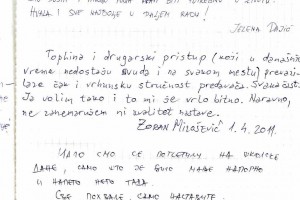 HVALA I SVE NAJBOLJE U DALJEM RADU!
JELENA DAJIĆ
Toplina i drugarski pristup (koji u današnje
vreme nedostaju svuda i na svakom mestu) prevazi-
laze čak i vrhunsku stručnost predavača. Svaka čast!
Ja volim tako i to mi je vrlo bitno. Naravno,
ne zanemarujem ni kvalitet nastave.
ZORAN MILOŠEVIĆ 1.4.2011.
МАЛО СМО СЕ ПОТСЕТИЛИ НА ШКОЛСКЕ
ДАНЕ, САМО ШТО ЈЕ БИЛО МАЊЕ НАПОРНО
И НАПЕТО НЕГО ТАДА.
СВЕ ПОХВАЛЕ, САМО НАСТАВИТЕ